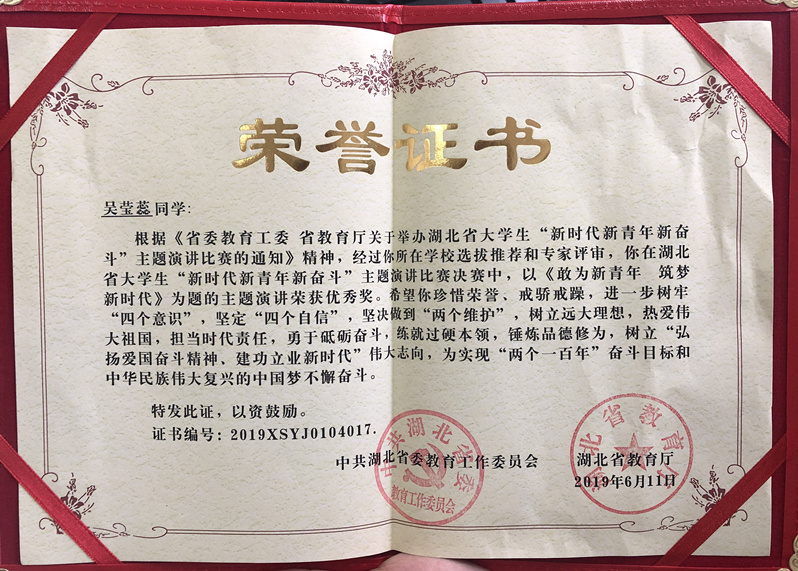 荣誉证书
吴莹蕊同学:
根据《省委教育工委 省教育厅关于举办湖北省大学生“新时代新青年新奋
斗”主题演讲比赛的通知》精神，经过你所在学校选拔推荐和专家评审，你在湖北
省大学生“新时代新青年新奋斗”主题演讲比赛决赛中，以《敢为新青年 筑梦
新时代》为题的主题演讲荣获优秀奖。希望你珍惜荣誉、戒骄戒躁，进一步树牢
“四个意识”，坚定“四个自信”，坚决做到“两个维护”，树立远大理想，热爱伟
大祖国，担当时代责任，勇于砥砺奋斗，练就过硬本领，锤炼品德修为，树立“弘
扬爱国奋斗精神、建功立业新时代”伟大志向，为实现“两个一百年”奋斗目标和
中华民族伟大复兴的中国梦不懈奋斗。
特发此证，以资鼓励。
证书编号: 2019XSYJ0104017.
中共湖北省委教育工作委员会 湖北省教育厅
2019年6月11日
中共湖北省委
教育工作委员会
湖北省教育厅